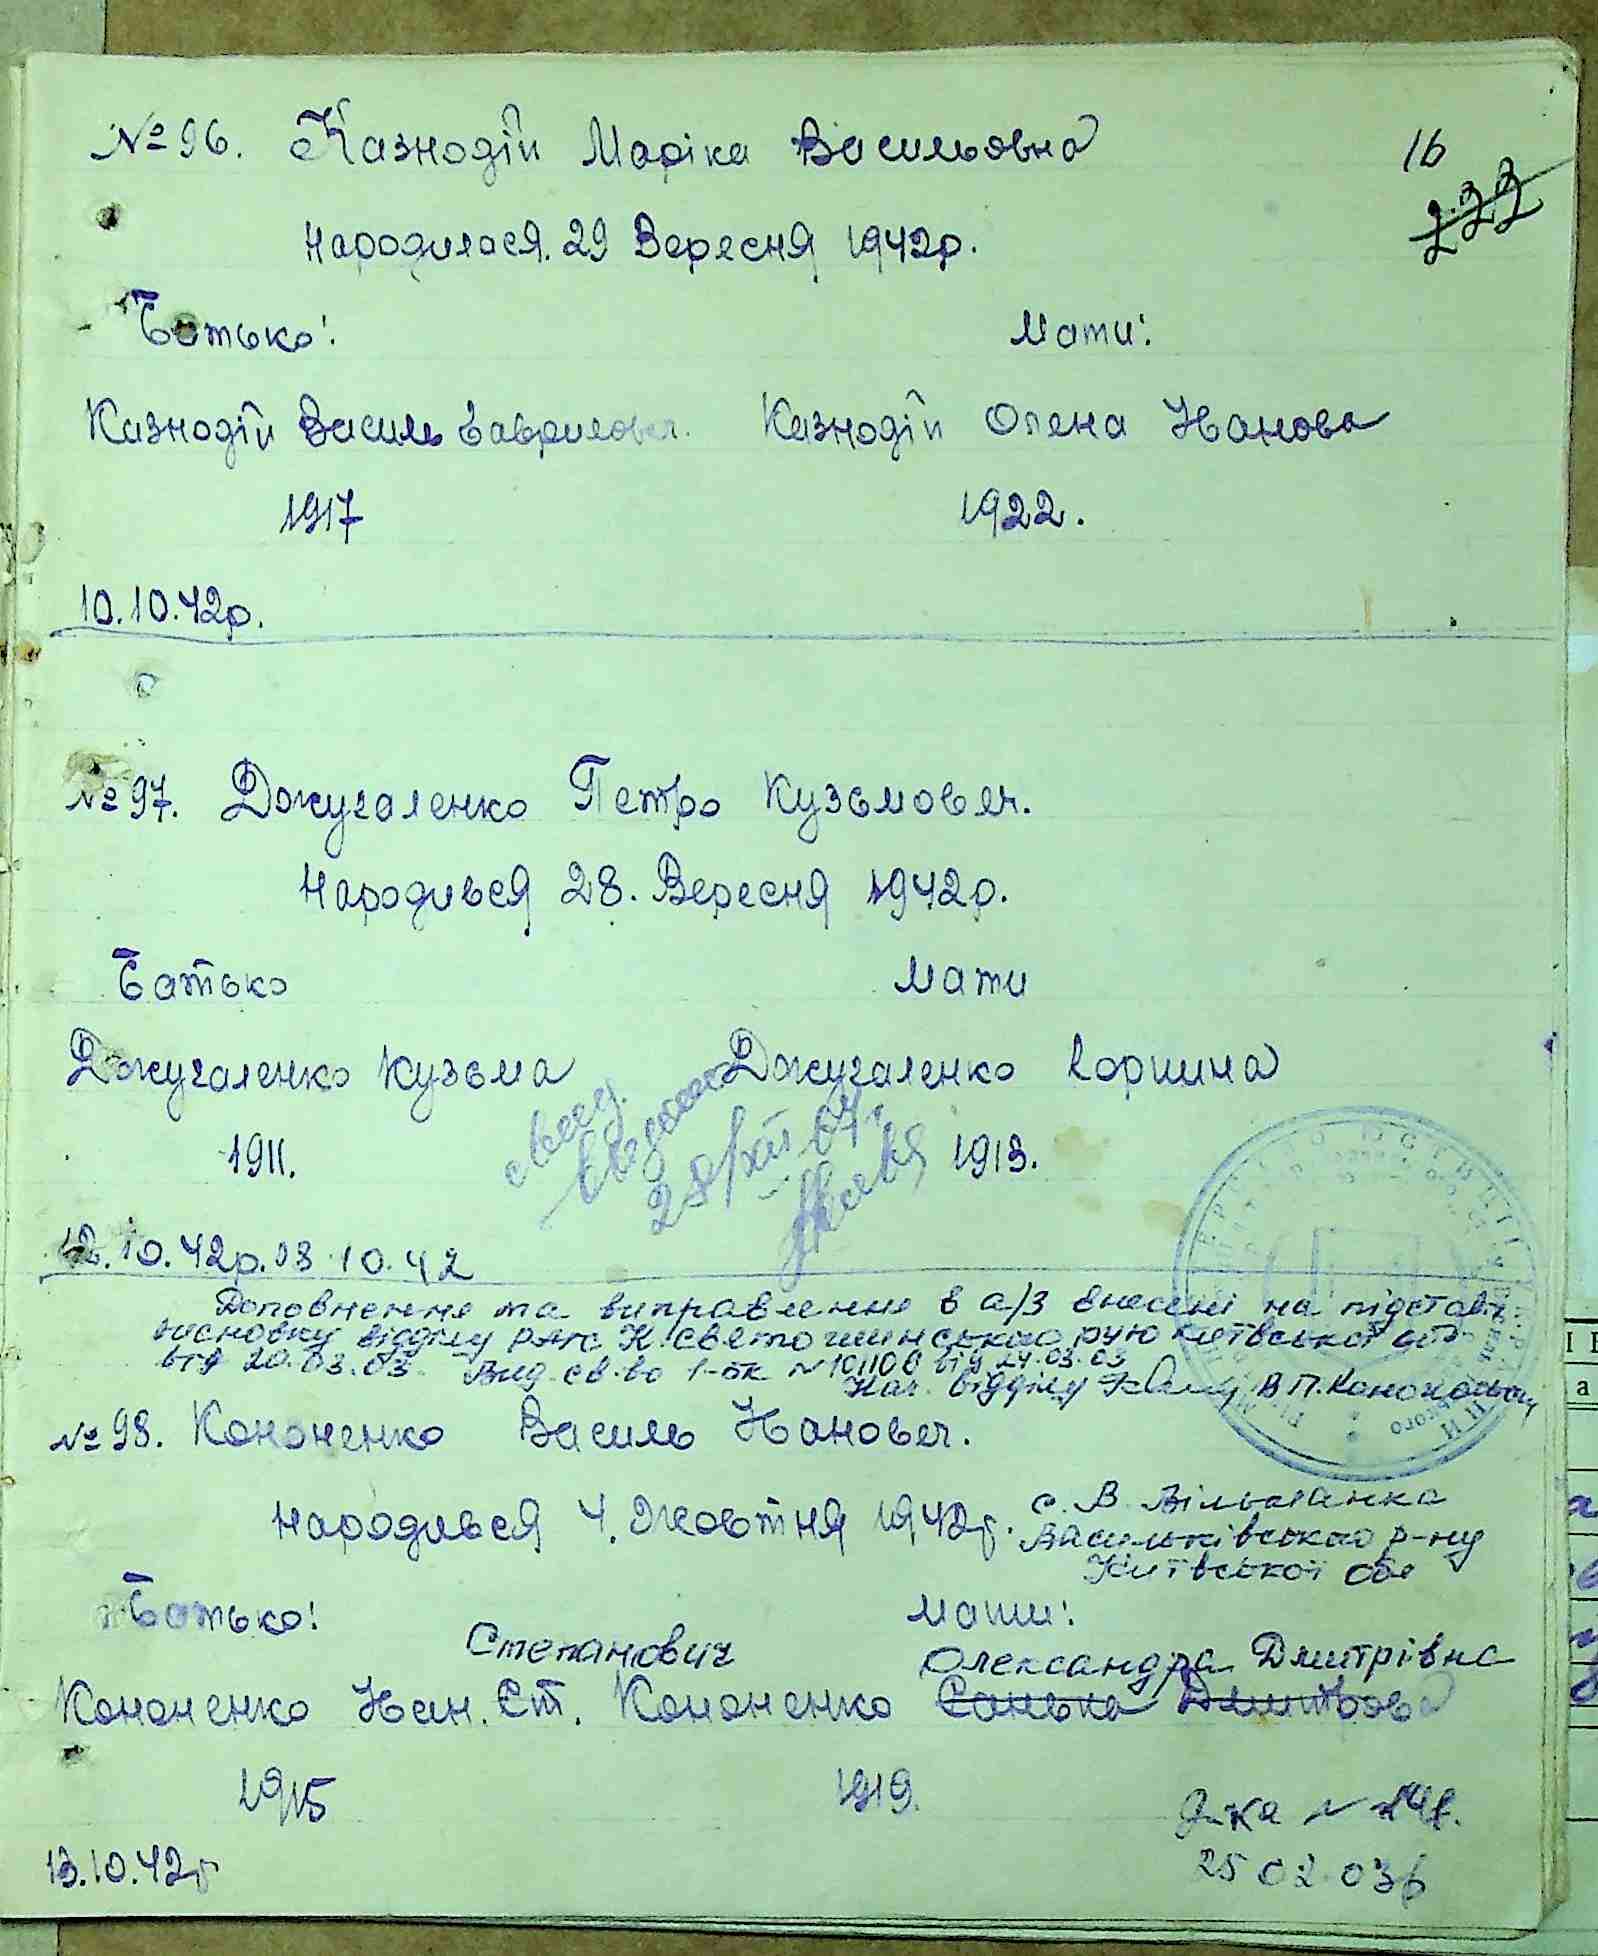 № 96. Казнодій Маріка Васильовна
16
233
Народилася. 29 Вересня 1942р.
Батько: Мати:
Казнодій Василь Гаврилович. Казнодій Олена Іванова
1917 1922.
10.10.42р.
№ 97. Джугаленко Петро Кузьмович.
Народився 28. Вересня 1942р.
Батько Мати
Джугаленко Кузьма Джугаленко
1911. 1913.
12.10.42р. 03.10.42
Доповнення та виправлення в а/з внесені на підставі
висновку відділу рагс К.Святошинського рую Київської обл
від 20.03.03 Вид. св-во 1-бк № 101106 від 24.03.03
Нач. відділу В.П.
№ 98. Кононенко Василь Іванович.
Народився 4. Жовтня 1942р. с. В. Вільшанка
Васильківського р-ну
Київської обл
Батько: Мати:
Степанович Олександра Дмитрівна
Кононенко Іван. Ст. Кононенко Санька Дмитрова
1915 1919.
13.10.42р
25 02 03р